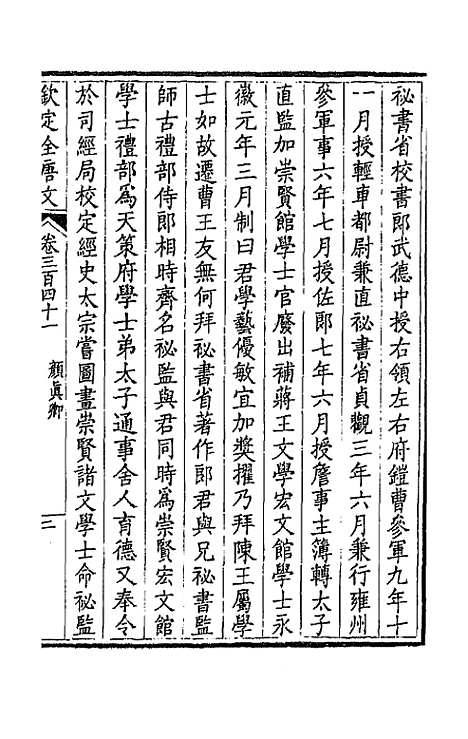 祕書省校書郎武德中授右領左右府鎧曹參軍九年十
一月授輕車都尉兼直祕書省貞觀三年六月兼行雍州
參軍事六年七月授佐郎七年六月授詹事主簿轉太子
直監加崇賢館學士官廢出補蔣王文學宏文館學士永
徽元年三月制曰君學藝優敏宜加獎擢乃拜陳王屬學
士如故遷曹王友無何拜祕書省著作郎君與兄祕書監
師古禮部侍郎相時齊名祕監與君同時為崇賢宏文館
學士禮部為天策府學士弟太子通事舍人育德又奉令
於司經局校定經史太宗嘗圖畫崇賢諸文學士命祕監
欽定全唐文 卷三百四十一 顏真卿 三